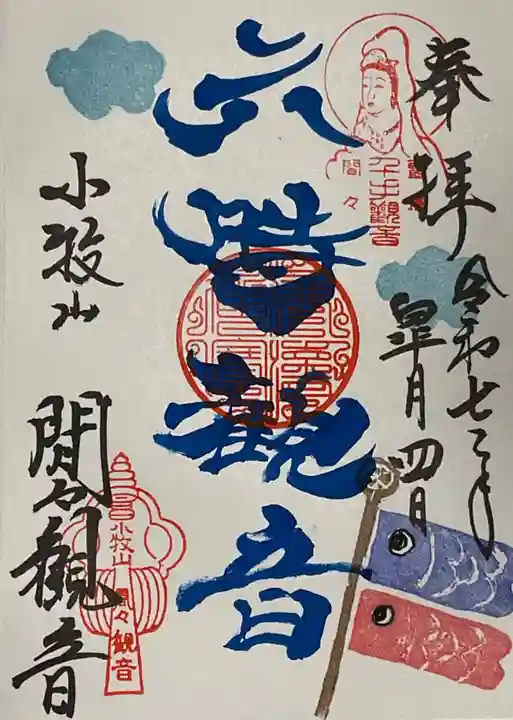 奉拝
令和七年
皐月四日
千手観音
間々
六
観音
小牧山
間々観音
小牧山
間々観音